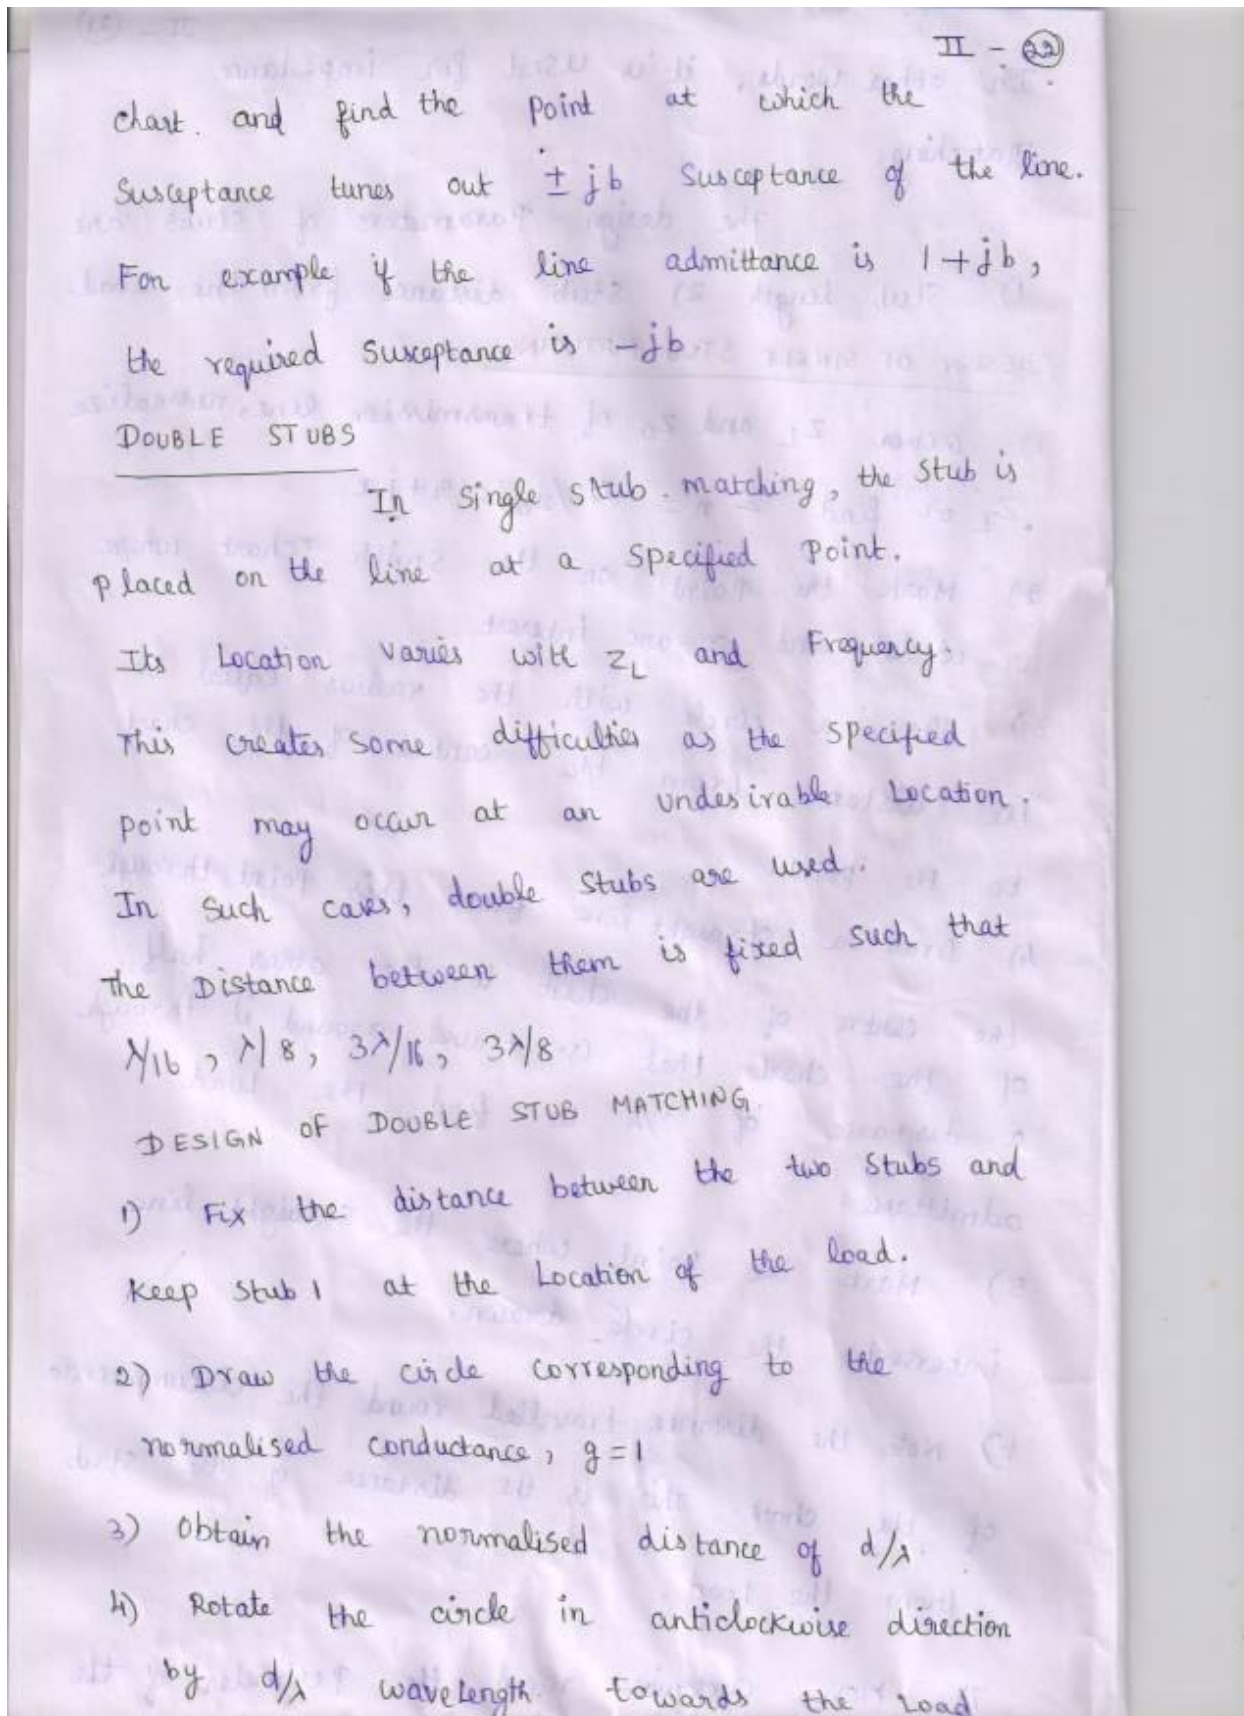 II - 22
chart. and find the point at which the
Susceptance tunes out ± jb Susceptance of the line.
For example if the line admittance is 1+jb,
the required Susceptance is -jb
DOUBLE STUBS
In single stub matching, the stub is
placed on the line at a specified point.
Its Location varies with ZL and Frequency.
This creates some difficulties as the specified
point may occur at an undesirable Location.
In such cases, double stubs are used.
The Distance between them is fixed such that
λ/16, λ/8, 3λ/16, 3λ/8
DESIGN OF DOUBLE STUB MATCHING
1) Fix the distance between the two stubs and
keep stub 1 at the Location of the load.
2) Draw the circle corresponding to the
normalised conductance, g=1
3) Obtain the normalised distance of d/λ.
4) Rotate the circle in anticlockwise direction
by d/λ wavelength towards the Load